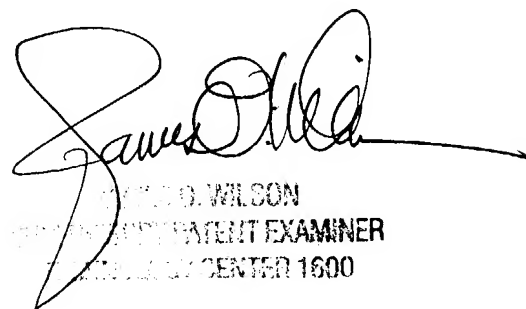 James O. Wilson
O. WILSON
PATENT EXAMINER
CENTER 1600